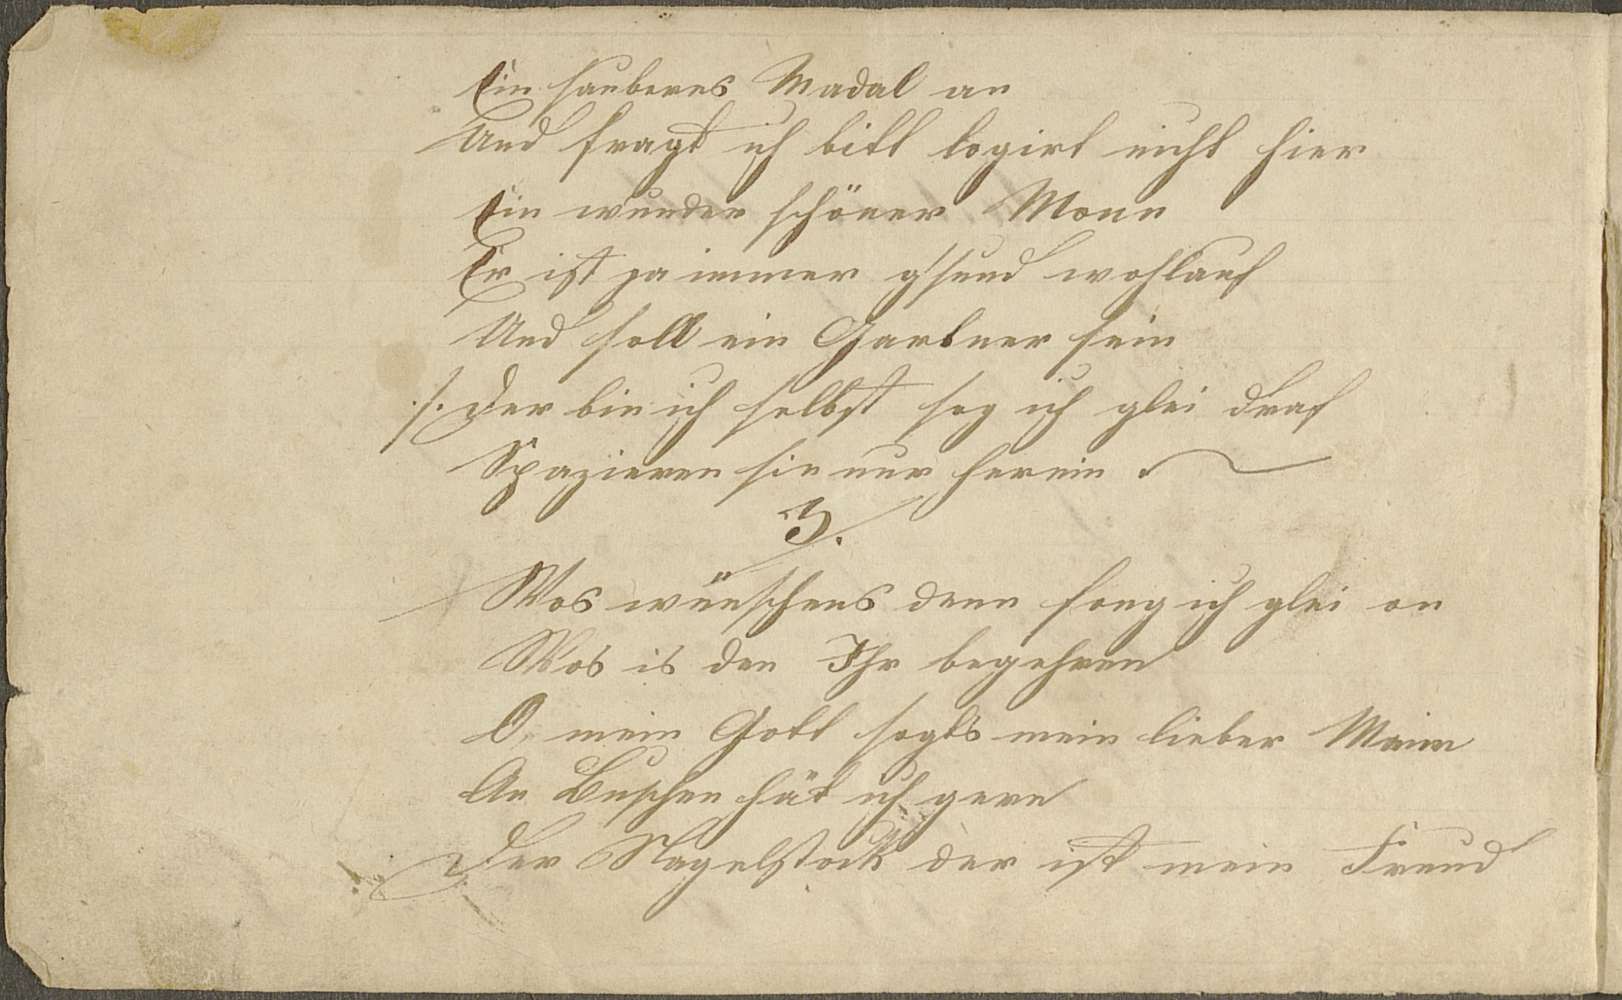 Ein sauberes Madal an
Und fragt ich bitt logirt nicht hier
Ein wunder schöner Monn
Er ist ja immer g'sund wohlauf
Und soll ein Gartner sein
./. Der bin ich selbst sog ich glei drauf
Spazieren sie nur herein
3.
Wos wünschens denn fong ich glei on
Wos is den Ihr begehren
O mein Gott sogts mein lieber Mann
An Buschen hät ich gern
Der Nagelstock der ist mein Freud